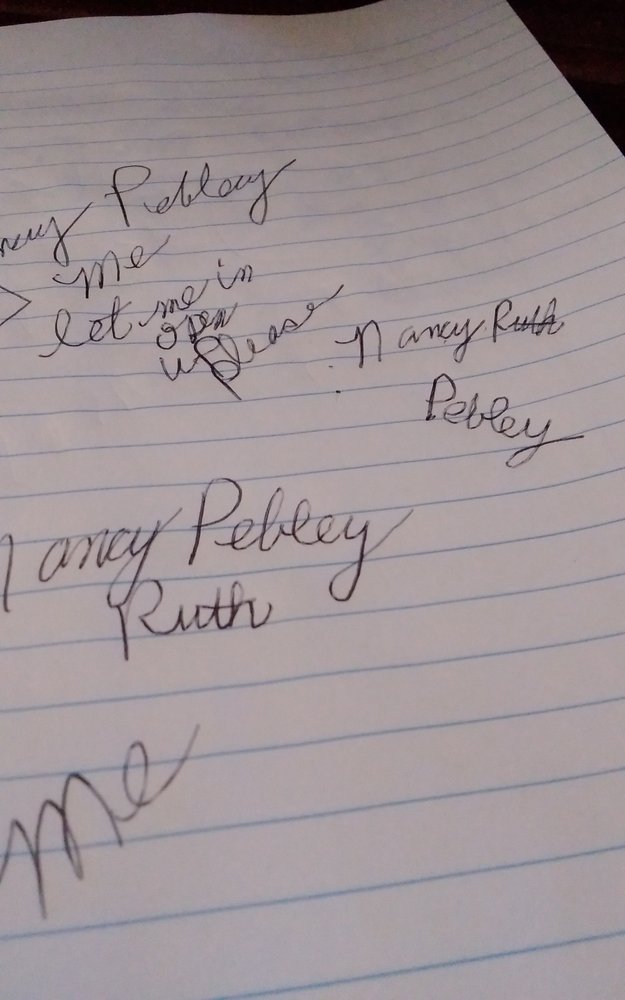 ncy Pebley
me
let me in
open
up please
Nancy Ruth
Pebley
Nancy Pebley
Ruth
me